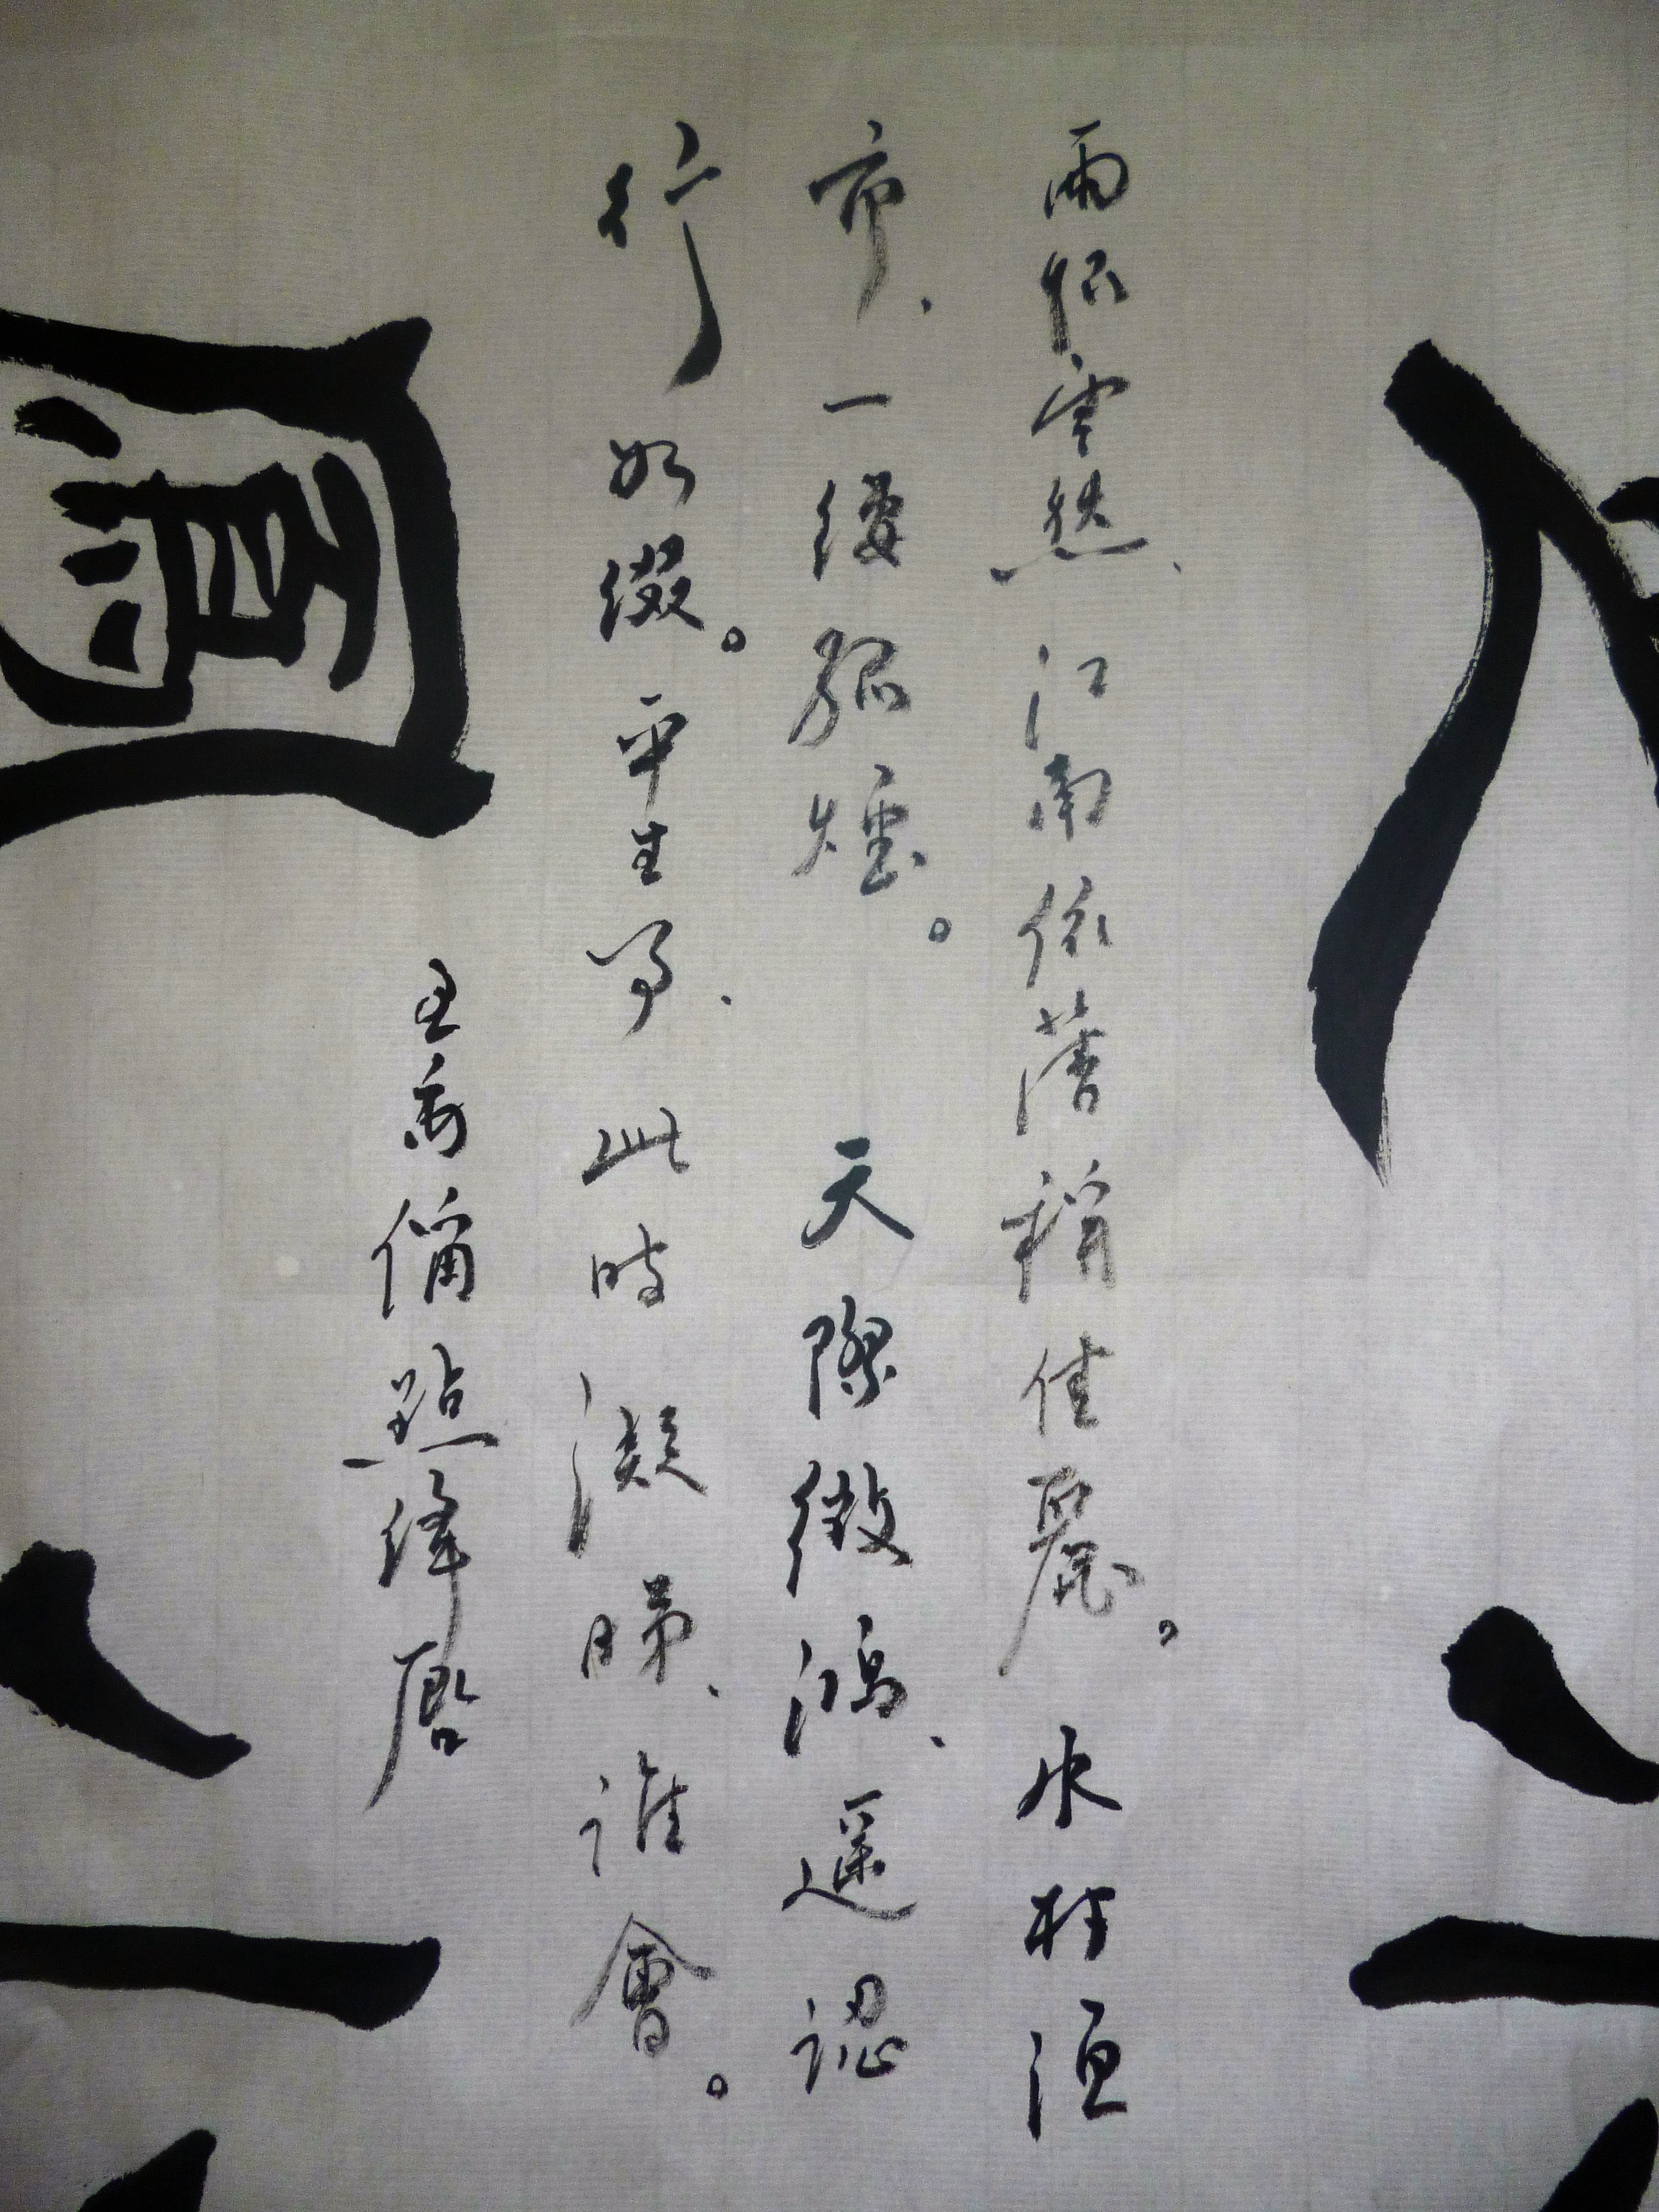 雨恨雲愁、江南依舊稱佳麗。水村漁
市、一縷孤煙。天際徵鴻、遥認
行如綴。平生事、此時凝睇、誰會。
王禹偁點絳唇